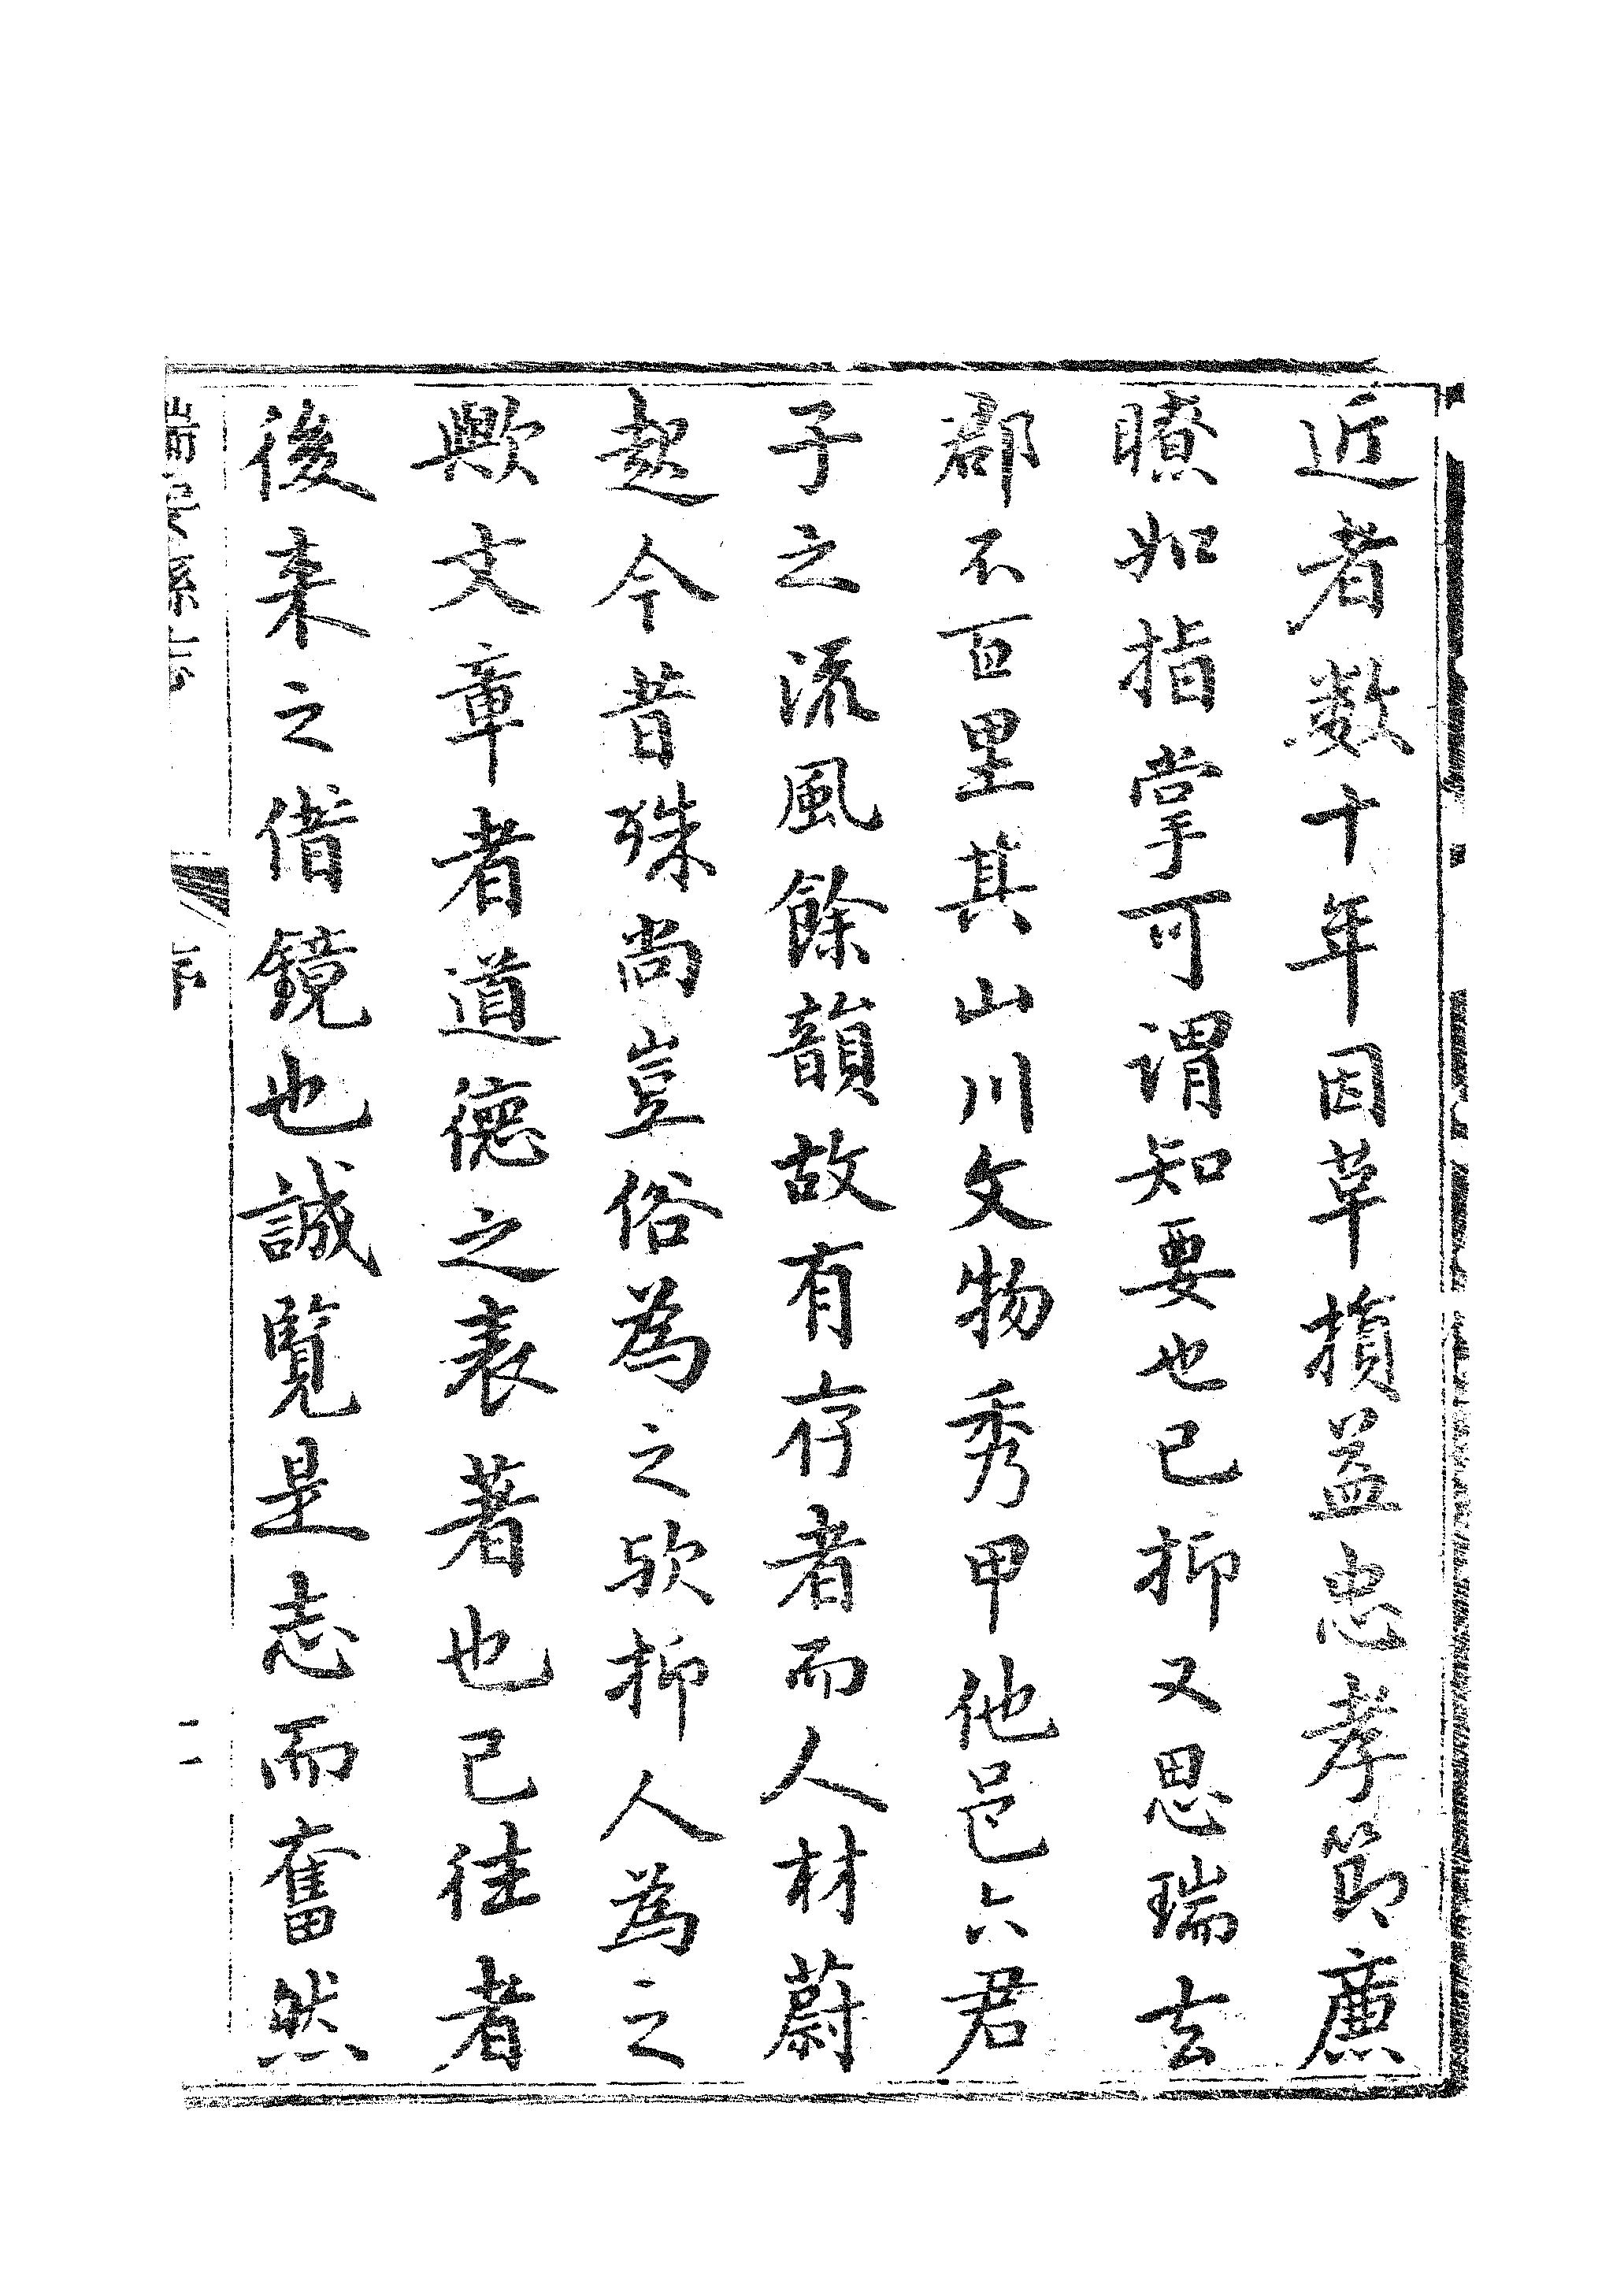 近者数十年因革損益忠孝節廉
瞭如指掌可謂知要也已抑又思瑞去
郡不百里其山川文物秀甲他邑六君
子之流風餘韻故有存者而人材蔚
起今昔殊尚豈俗為之欤抑人為之
歟文章者道德之表著也已往者
後来之借鏡也誠覧是志而奮然
瑞安縣志
序
二